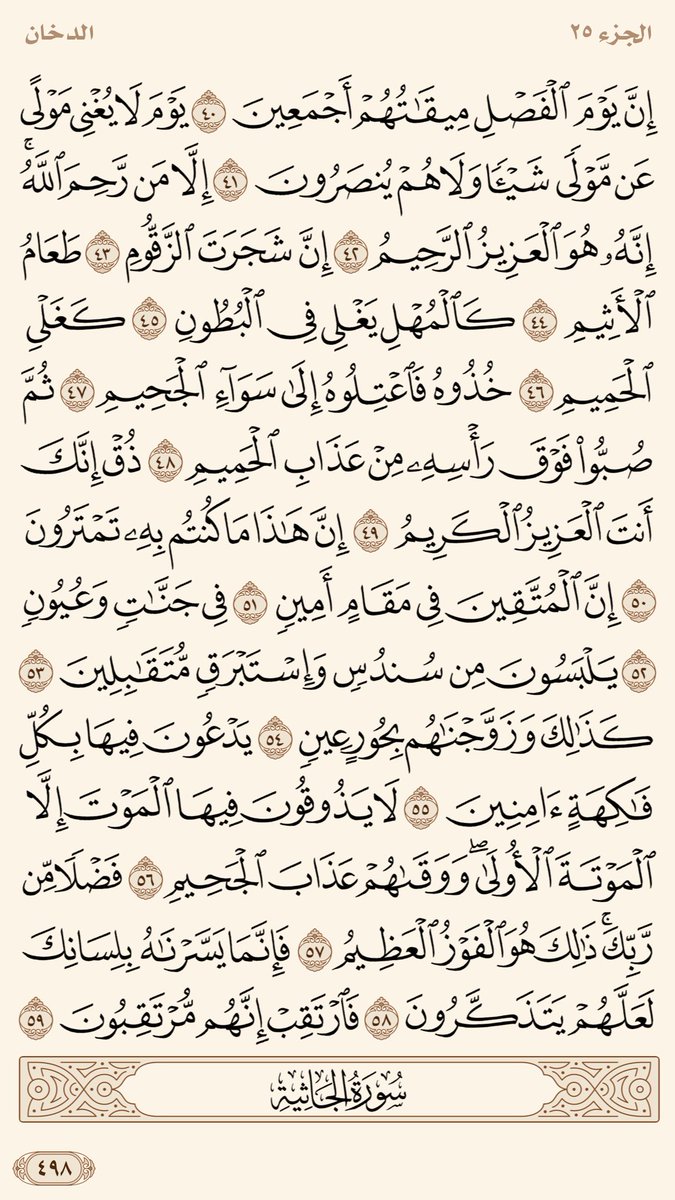 الجزء ٢٥
الدخان
إِنَّ يَوْمَ ٱلْفَصْلِ مِيقَـٰتُهُمْ أَجْمَعِينَ ٤٠ يَوْمَ لَا يُغْنِى مَوْلًى
عَن مَّوْلًى شَيْـًٔا وَلَا هُمْ يُنصَرُونَ ٤١ إِلَّا مَن رَّحِمَ ٱللَّهُ ۚ
إِنَّهُۥ هُوَ ٱلْعَزِيزُ ٱلرَّحِيمُ ٤٢ إِنَّ شَجَرَتَ ٱلزَّقُّومِ ٤٣ طَعَامُ
ٱلْأَثِيمِ ٤٤ كَٱلْمُهْلِ يَغْلِى فِى ٱلْبُطُونِ ٤٥ كَغَلْىِ
ٱلْحَمِيمِ ٤٦ خُذُوهُ فَٱعْتِلُوهُ إِلَىٰ سَوَآءِ ٱلْجَحِيمِ ٤٧ ثُمَّ
صُبُّوا۟ فَوْقَ رَأْسِهِۦ مِنْ عَذَابِ ٱلْحَمِيمِ ٤٨ ذُقْ إِنَّكَ
أَنتَ ٱلْعَزِيزُ ٱلْكَرِيمُ ٤٩ إِنَّ هَـٰذَا مَا كُنتُم بِهِۦ تَمْتَرُونَ
٥٠ إِنَّ ٱلْمُتَّقِينَ فِى مَقَامٍ أَمِينٍ ٥١ فِى جَنَّـٰتٍ وَعُيُونٍ
٥٢ يَلْبَسُونَ مِن سُندُسٍ وَإِسْتَبْرَقٍ مُّتَقَـٰبِلِينَ ٥٣
كَذَٰلِكَ وَزَوَّجْنَـٰهُم بِحُورٍ عِينٍ ٥٤ يَدْعُونَ فِيهَا بِكُلِّ
فَـٰكِهَةٍ ءَامِنِينَ ٥٥ لَا يَذُوقُونَ فِيهَا ٱلْمَوْتَ إِلَّا
ٱلْمَوْتَةَ ٱلْأُولَىٰ ۖ وَوَقَىٰهُمْ عَذَابَ ٱلْجَحِيمِ ٥٦ فَضْلًا مِّن
رَّبِّكَ ۚ ذَٰلِكَ هُوَ ٱلْفَوْزُ ٱلْعَظِيمُ ٥٧ فَإِنَّمَا يَسَّرْنَـٰهُ بِلِسَانِكَ
لَعَلَّهُمْ يَتَذَكَّرُونَ ٥٨ فَٱرْتَقِبْ إِنَّهُم مُّرْتَقِبُونَ ٥٩
سُورَةُ الجَاثِيَةِ
٤٩٨